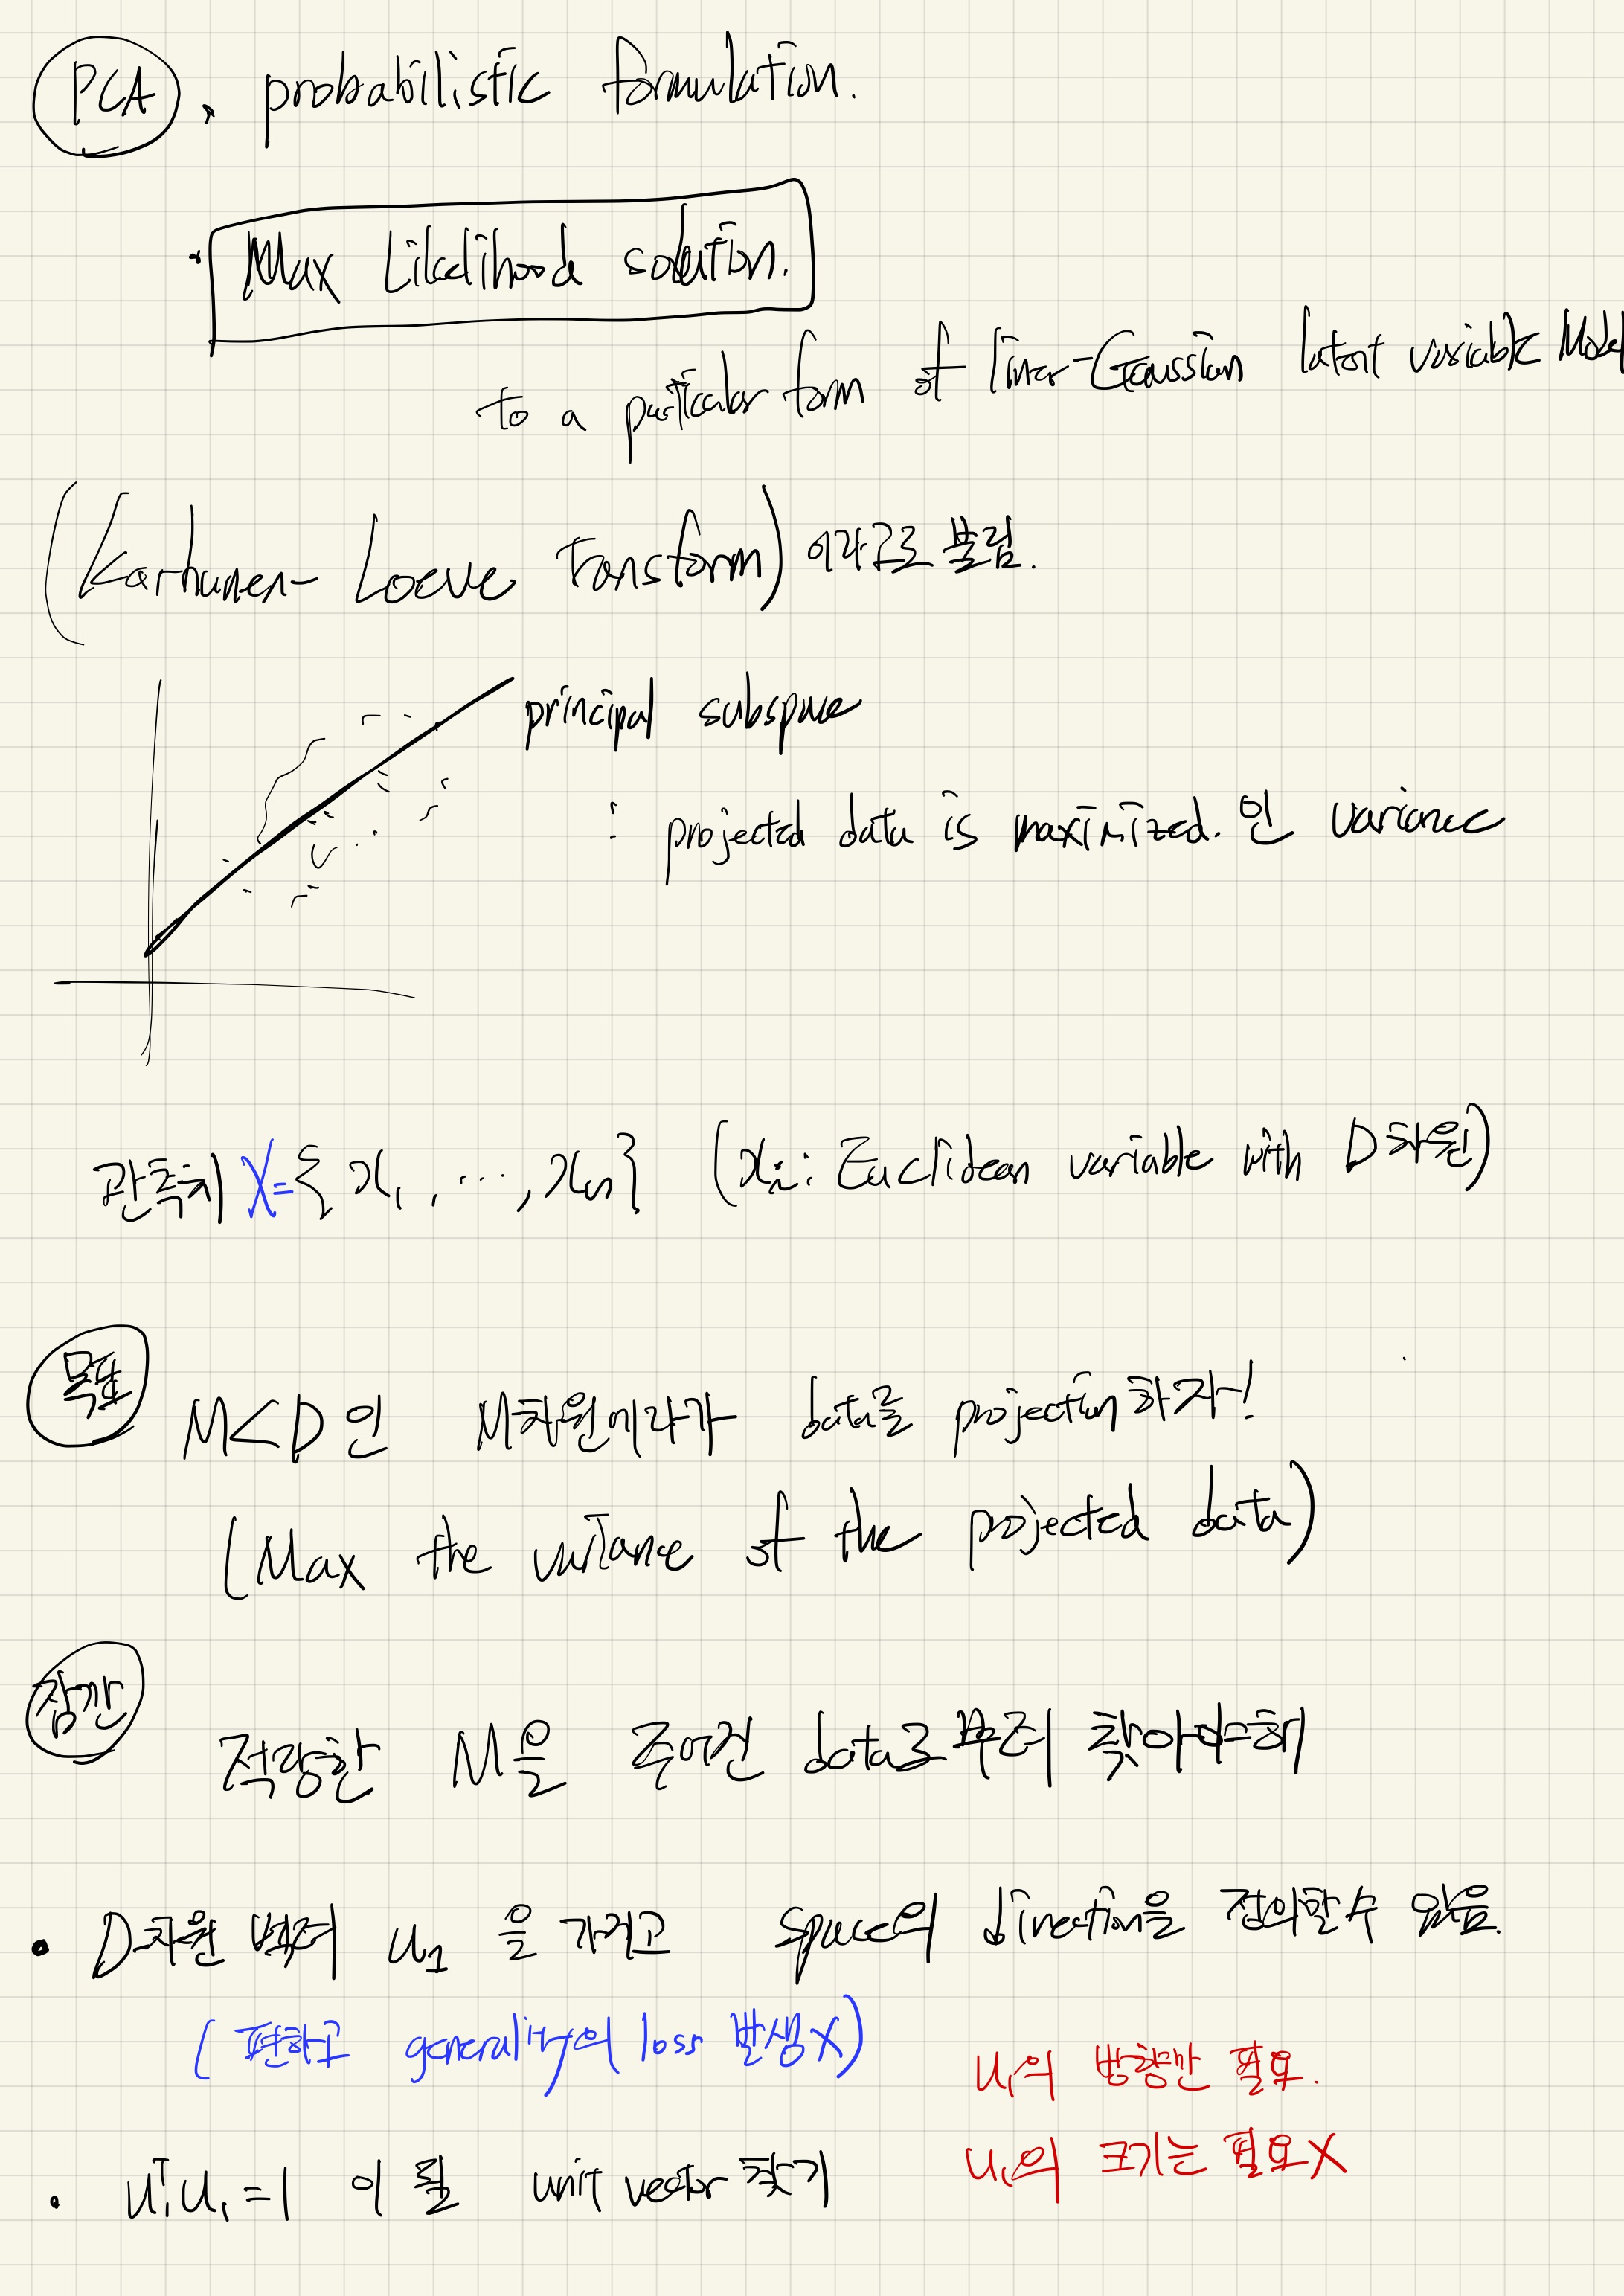 PCA, probabilistic formulation.
Max Likelihood solution.
to a particular form of linear-Gaussian latent variable Model
(Karhunen- Loeve Transform) 이라고도 불림.
principal subspace
: projected data is maximized. 인 variance
관측치 X={x₁, ⋯, xₙ} (xᵢ: Euclidean variable with D차원)
목표
M<D인 M차원에다가 data를 projection하자!
(Max the variance of the projected data)
잠깐
적당한 M을 주어진 data로부터 찾아야해
• D차원 벡터 u₁을 가지고 space의 direction을 정의할 수 있음.
(편하고 generality의 loss 발생X)
u₁의 방향만 필요.
u₁의 크기는 필요X
• u₁ᵀu₁=1 이 될 unit vector 찾기